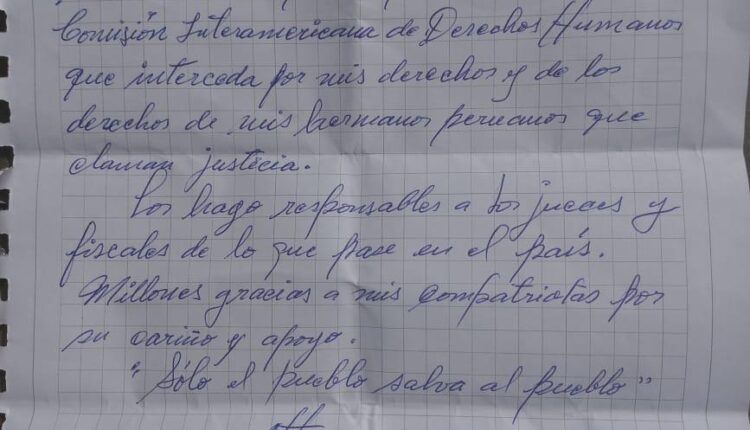 Comisión Interamericana de Derechos Humanos
que interceda por mis derechos y de los
derechos de mis hermanos peruanos que
claman justicia.
Los hago responsables a los jueces y
fiscales de lo que pase en el país.
Millones gracias a mis compatriotas por
su cariño y apoyo.
"Sólo el pueblo salva al pueblo"